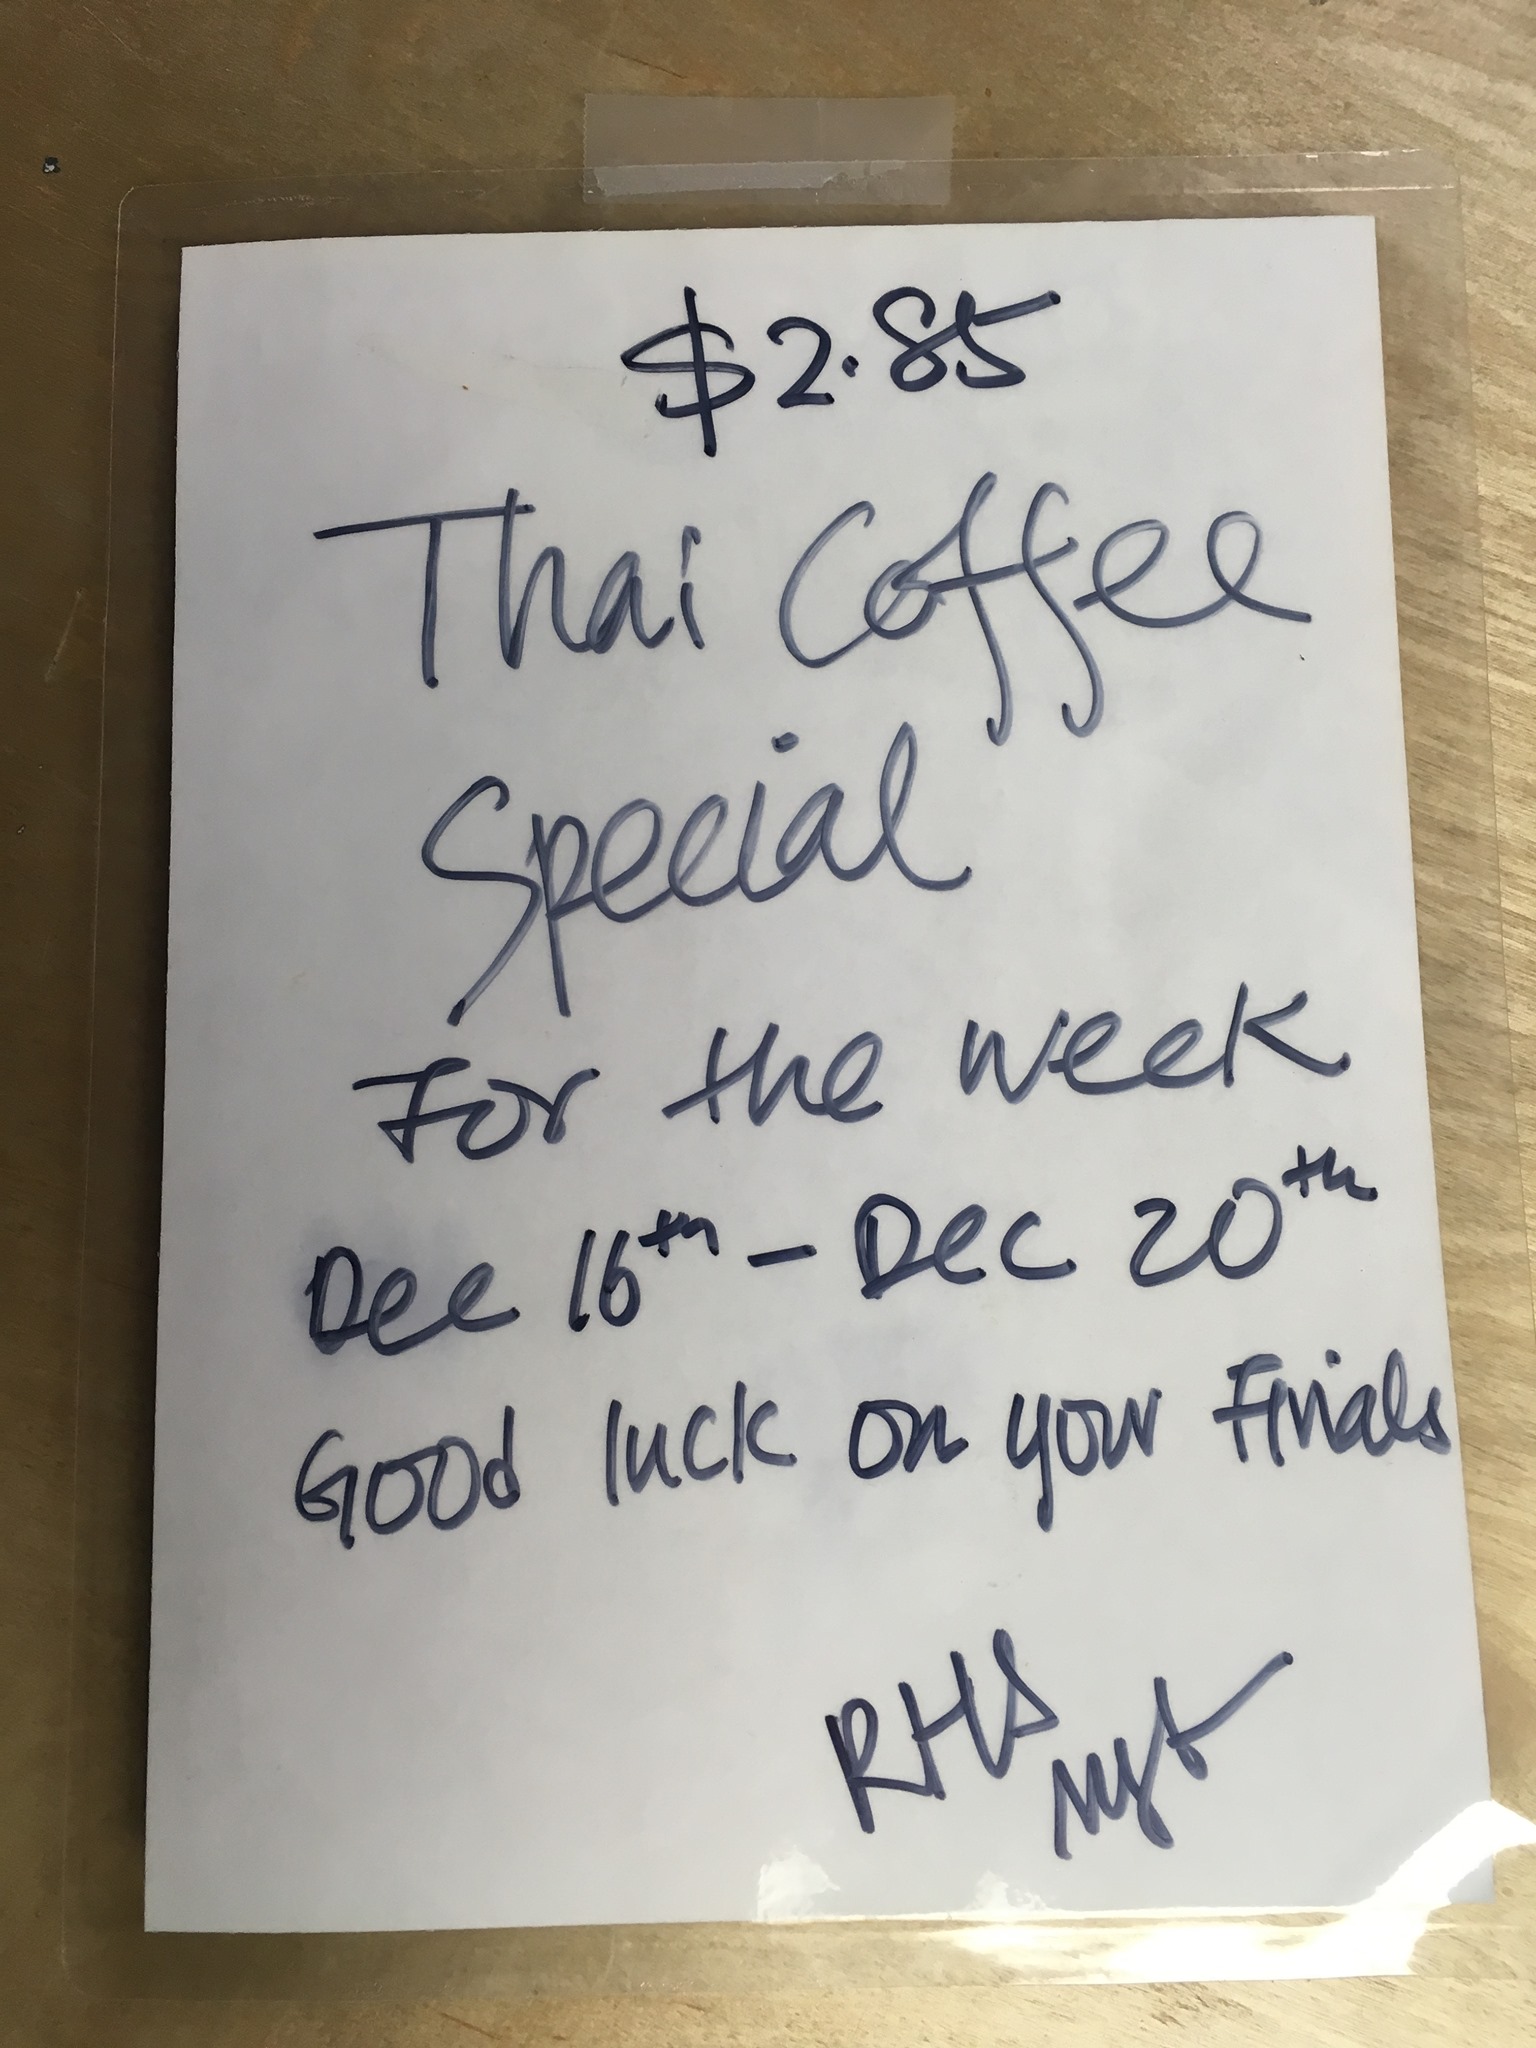 $2.85
Thai Coffee
Special
For the week
Dec 16th - Dec 20th
Good luck on your Finals
RHS